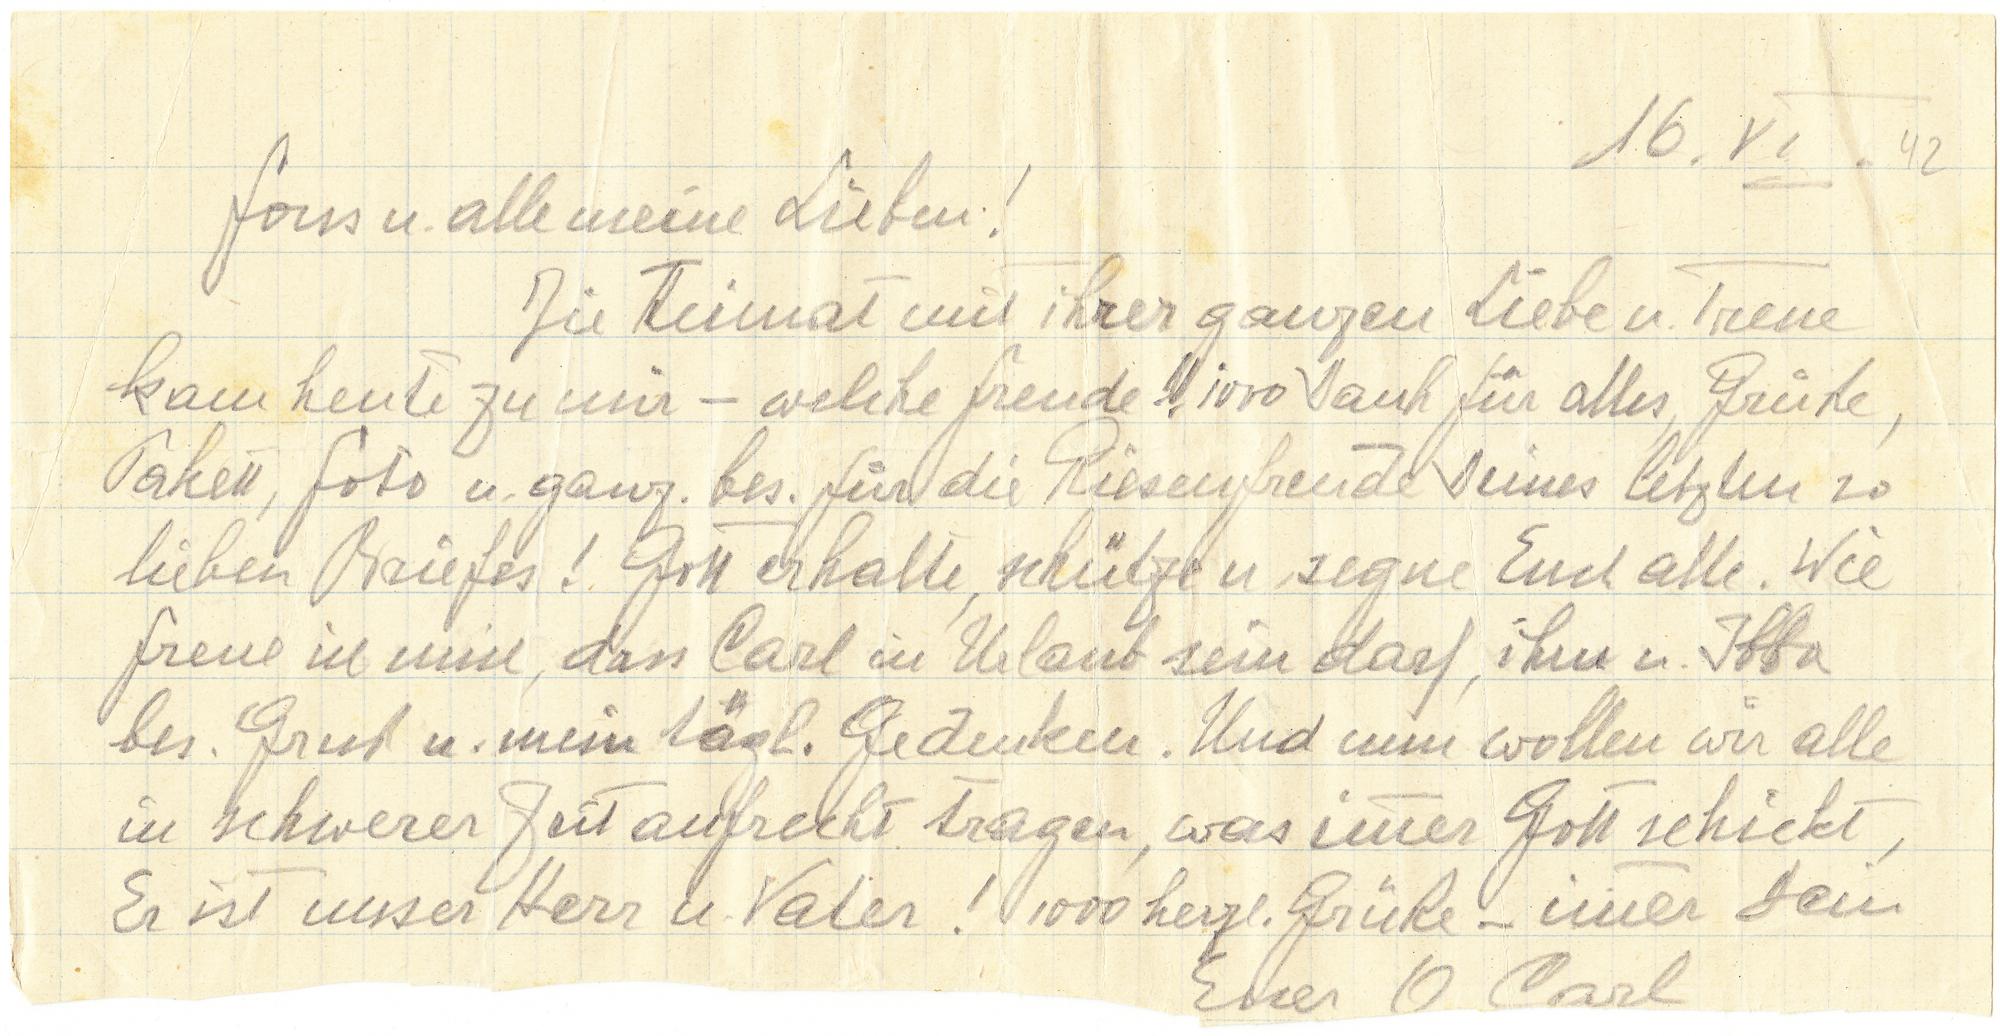 16. VI. 42
Fons u. alle meine Lieben!
Die Heimat mit ihrer ganzen Liebe u. Treue
kam heute zu mir – welche Freude!! 1000 Dank für alles, Grüße,
Pakett, Foto u. ganz. bes. für die Riesenfreude Deines letzten so
lieben Briefes! Gott erhalte, schütze u. segne Euch alle. Wie
freue ich mich, dass Carl in Urlaub sein darf, ihm u. Ibba
bes. Gruß u. mein tägl. Gedenken. Und nun wollen wir alle
in schwerer Zeit aufrecht tragen, was im̄er Gott schickt,
Er ist unser Herr u. Vater! 1000 herzl. Grüße – im̄er Dein
Euer O Carl